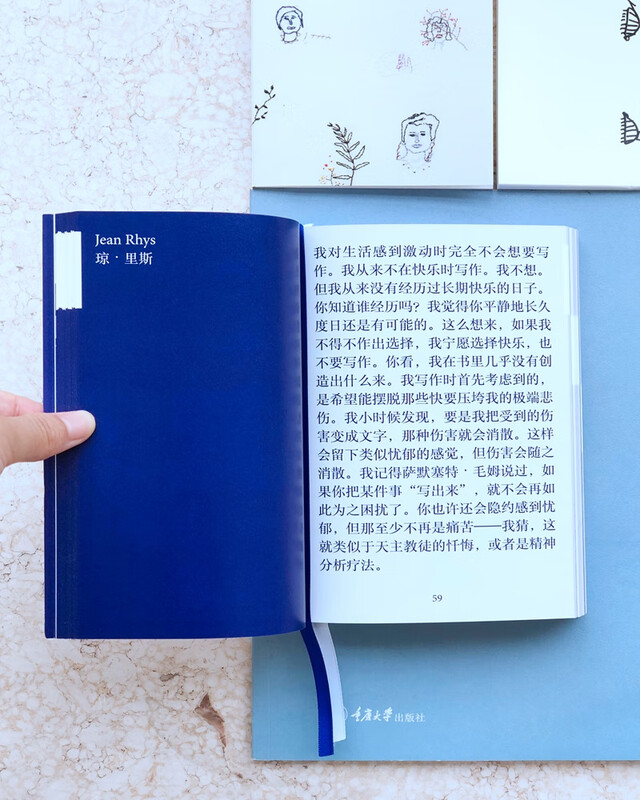 Jean Rhys
琼·里斯
我对生活感到激动时完全不会想要写
作。我从来不在快乐时写作。我不想。
但我从来没有经历过长期快乐的日子。
你知道谁经历吗？我觉得你平静地长久
度日还是有可能的。这么想来，如果我
不得不作出选择，我宁愿选择快乐，也
不要写作。你看，我在书里几乎没有创
造出什么来。我写作时首先考虑到的，
是希望能摆脱那些快要压垮我的极端悲
伤。我小时候发现，要是我把受到的伤
害变成文字，那种伤害就会消散。这样
会留下类似忧郁的感觉，但伤害会随之
消散。我记得萨默塞特·毛姆说过，如
果你把某件事“写出来”，就不会再如
此为之困扰了。你也许还会隐约感到忧
郁，但那至少不再是痛苦——我猜，这
就类似于天主教徒的忏悔，或者是精神
分析疗法。
59
重庆大学出版社